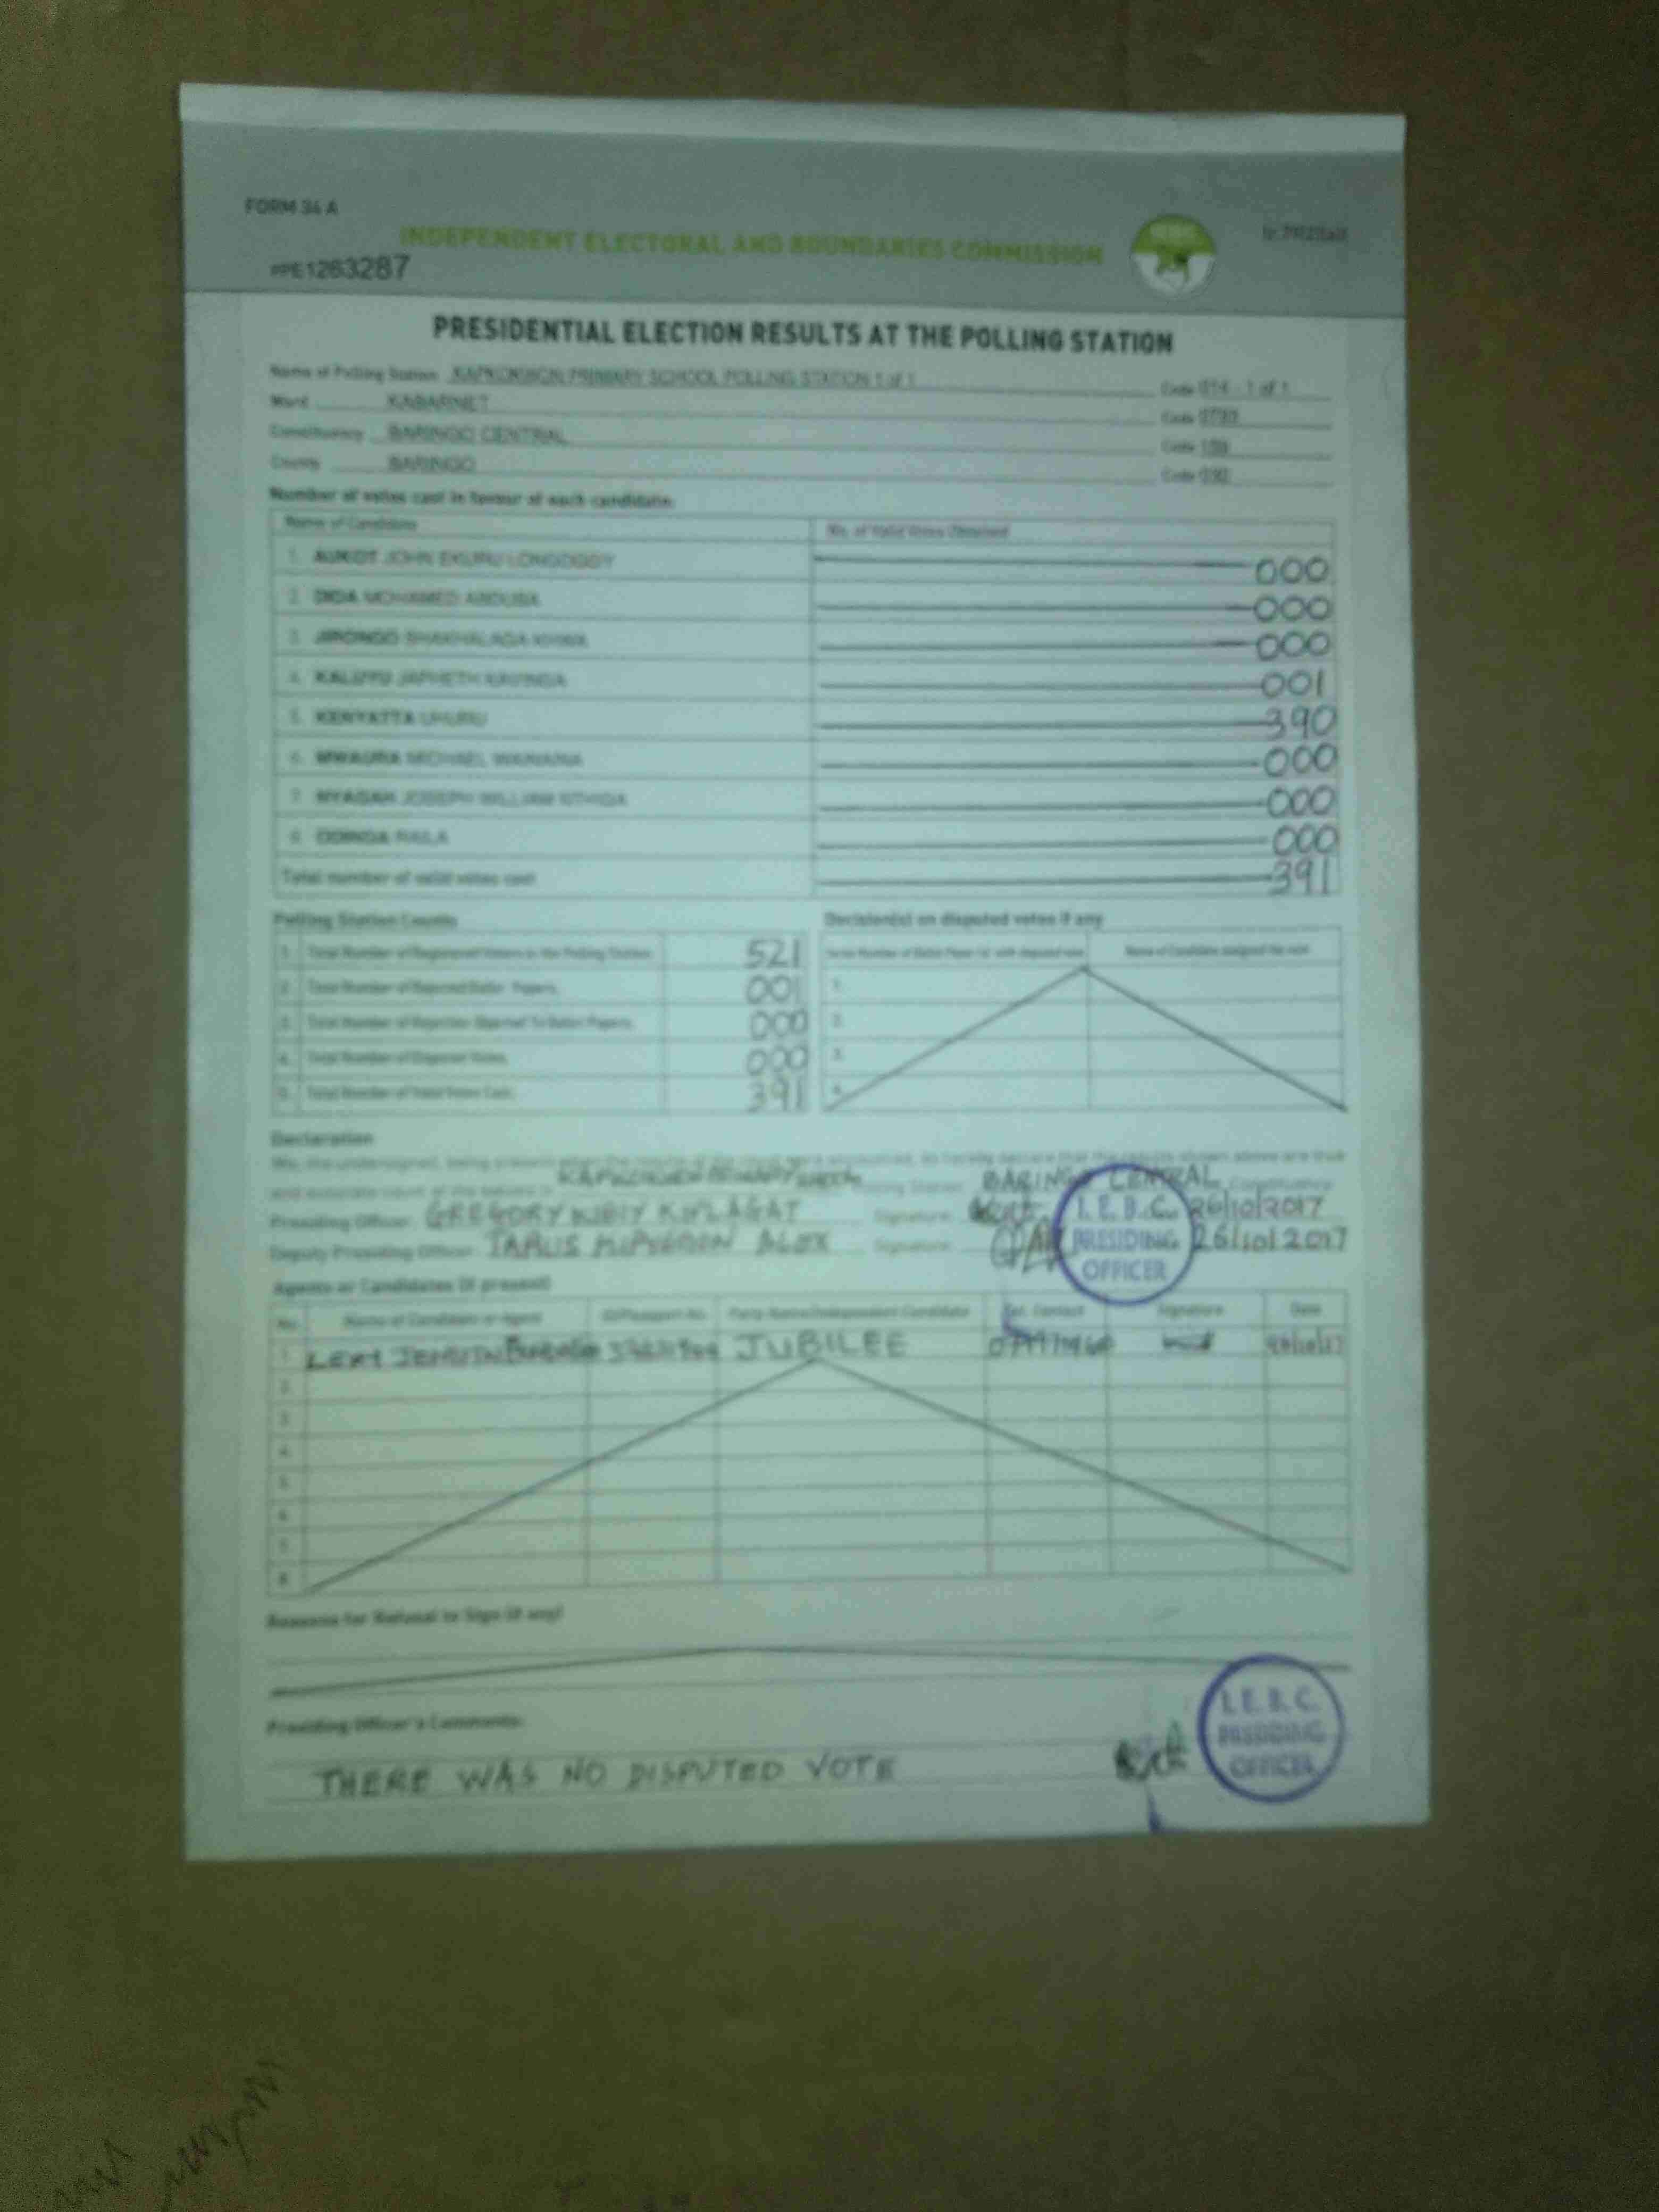 FORM 34 A
INDEPENDENT ELECTORAL AND BOUNDARIES COMMISSION
PE1263287
PRESIDENTIAL ELECTION RESULTS AT THE POLLING STATION
Name of Polling Station PRIMARY SCHOOL POLLING STATION 1 of 1 Code 014 - 1 of 1
Ward KABARNET Code
Constituency BARINGO CENTRAL Code
County BARINGO Code 030
Number of votes cast in favour of each candidate:
Name of Candidate No. of Valid Votes Obtained
1. AUKOT JOHN EKURU LONGOGGY 000
2. DIDA MOHAMED ABDUBA 000
3. JIRONGO SHAKHALAGA KHWA 000
4. KALUYU JAPHETH KAVINGA 001
5. KENYATTA UHURU 390
6. MWAURA MICHAEL WAINAINA 000
7. NYAGAH JOSEPH WILLIAM NTHIGA 000
8. ODINGA RAILA 000
Total number of valid votes cast 391
Polling Station Counts
1. Total Number of Registered Voters in the Polling Station 521
2. Total Number of Rejected Ballot Papers 001
3. Total Number of Rejection Objected To Ballot Papers 000
4. Total Number of Disputed Votes 000
5. Total Number of Valid Votes Cast 391
Decision(s) on disputed votes if any
Serial Number of Ballot Paper (s) with disputed vote Name of Candidate assigned the vote
1.
2.
3.
4.
Declaration
We, the undersigned, being present when the results of the count were announced, do hereby declare that the results shown above are true
and accurate count of the ballots in Polling Station BARINGO CENTRAL Constituency
Presiding Officer: GREGORY KIPLAGAT Signature: 26/10/2017
Deputy Presiding Officer: Signature: 26/10/2017
I.E.B.C.
PRESIDING
OFFICER
Agents or Candidates (if present)
No. Name of Candidate or Agent ID/Passport No. Party Name/Independent Candidate Tel. Contact Signature Date
1. JUBILEE
2.
3.
4.
5.
6.
7.
8.
Reasons for Refusal to Sign (if any)
Presiding Officer's Comments:
THERE WAS NO DISPUTED VOTE
I.E.B.C.
PRESIDING
OFFICER